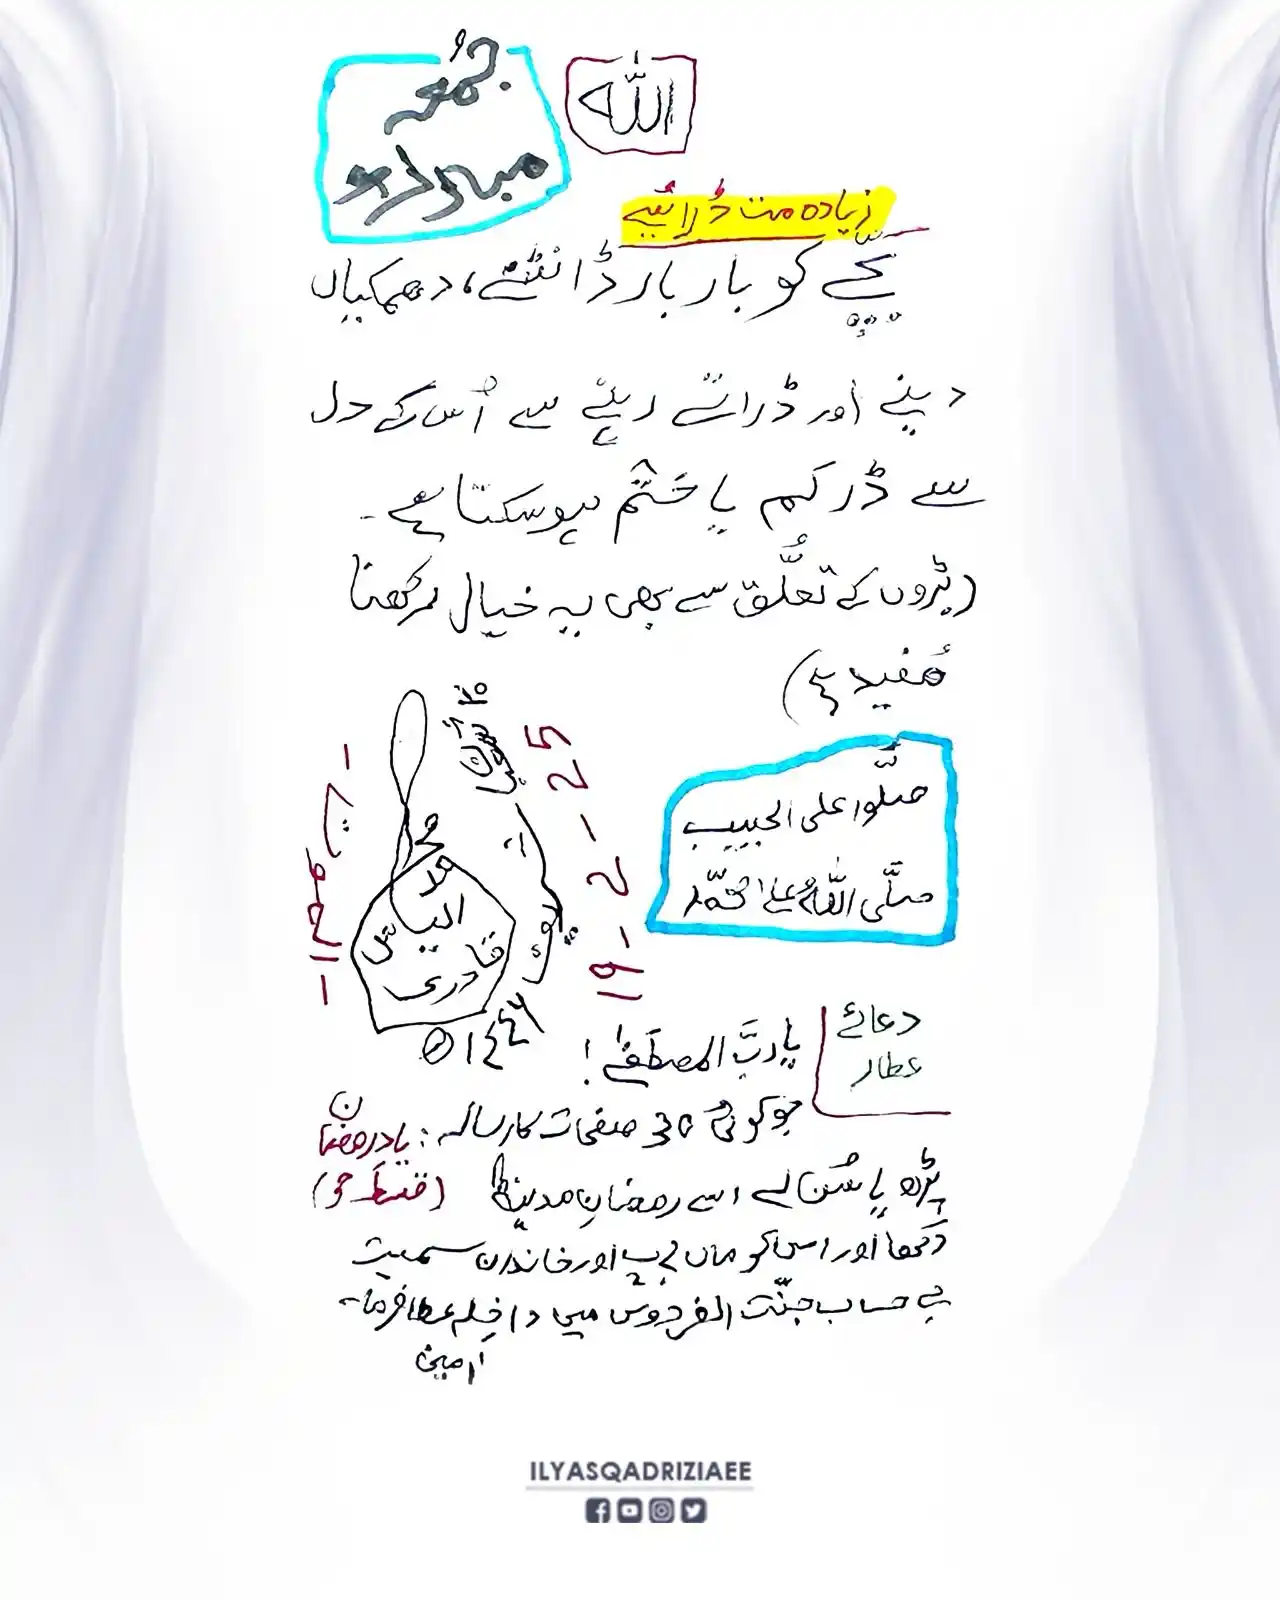 اللہ
جُمُعہ
مبارک ہو
زیادہ مت ڈرائیے
بچّے کو بار بار ڈانٹنے، دھمکیاں
دینے اور ڈراتے رہنے سے اُس کے دل
سے ڈر کم یا خَتْم ہوسکتا ہے۔
(بڑوں کے تعلُّق سے بھی یہ خیال رکھنا
مُفید ہے)
صلُّوا علی الحبیب
صلَّی اللہُ علٰی محمّد
محمد
الیاس
قادری
۱۴۴۶ھ
25 - 2 - 19
دعائے
عطار
یاربَّ المصطَفٰے!
جو کوئی 30 صفحات کا رسالہ: یادِ رمضان
پڑھ یا سُن لے اسے رمضانِ مدینہ (قسط 2)
دکھا اور اس کو ماں باپ اور خاندان سمیت
بے حساب جنّت الفردوس میں داخلہ عطا فرما۔
اٰمین
ILYASQADRIZIAEE